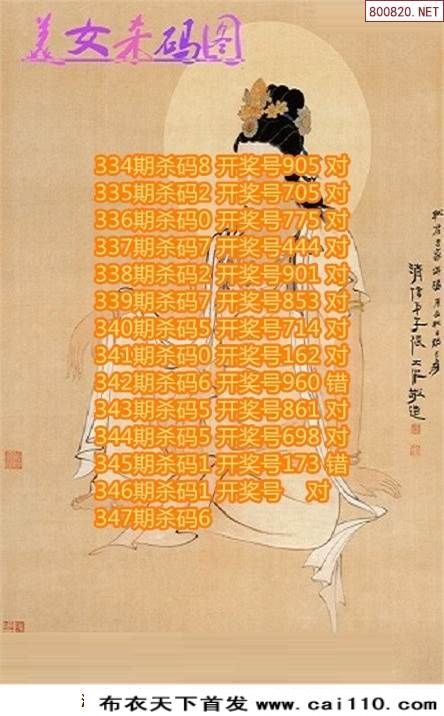 800820.NET
美女杀码图
334期杀码8 开奖号905 对
335期杀码2 开奖号705 对
336期杀码0 开奖号775 对
337期杀码7 开奖号444 对
338期杀码2 开奖号901 对
339期杀码7 开奖号853 对
340期杀码5 开奖号714 对
341期杀码0 开奖号162 对
342期杀码6 开奖号960 错
343期杀码5 开奖号861 对
344期杀码5 开奖号698 对
345期杀码1 开奖号173 错
346期杀码1 开奖号 对
347期杀码6
布衣天下首发 www.cai110.com